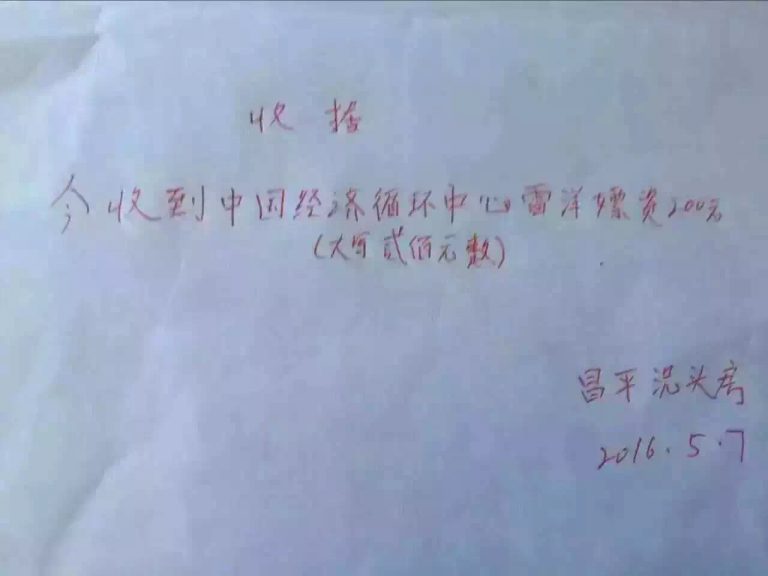 收据
今收到中国经济循环中心雷洋嫖资200元
(大写贰佰元整)
昌平洗头房
2016.5.7